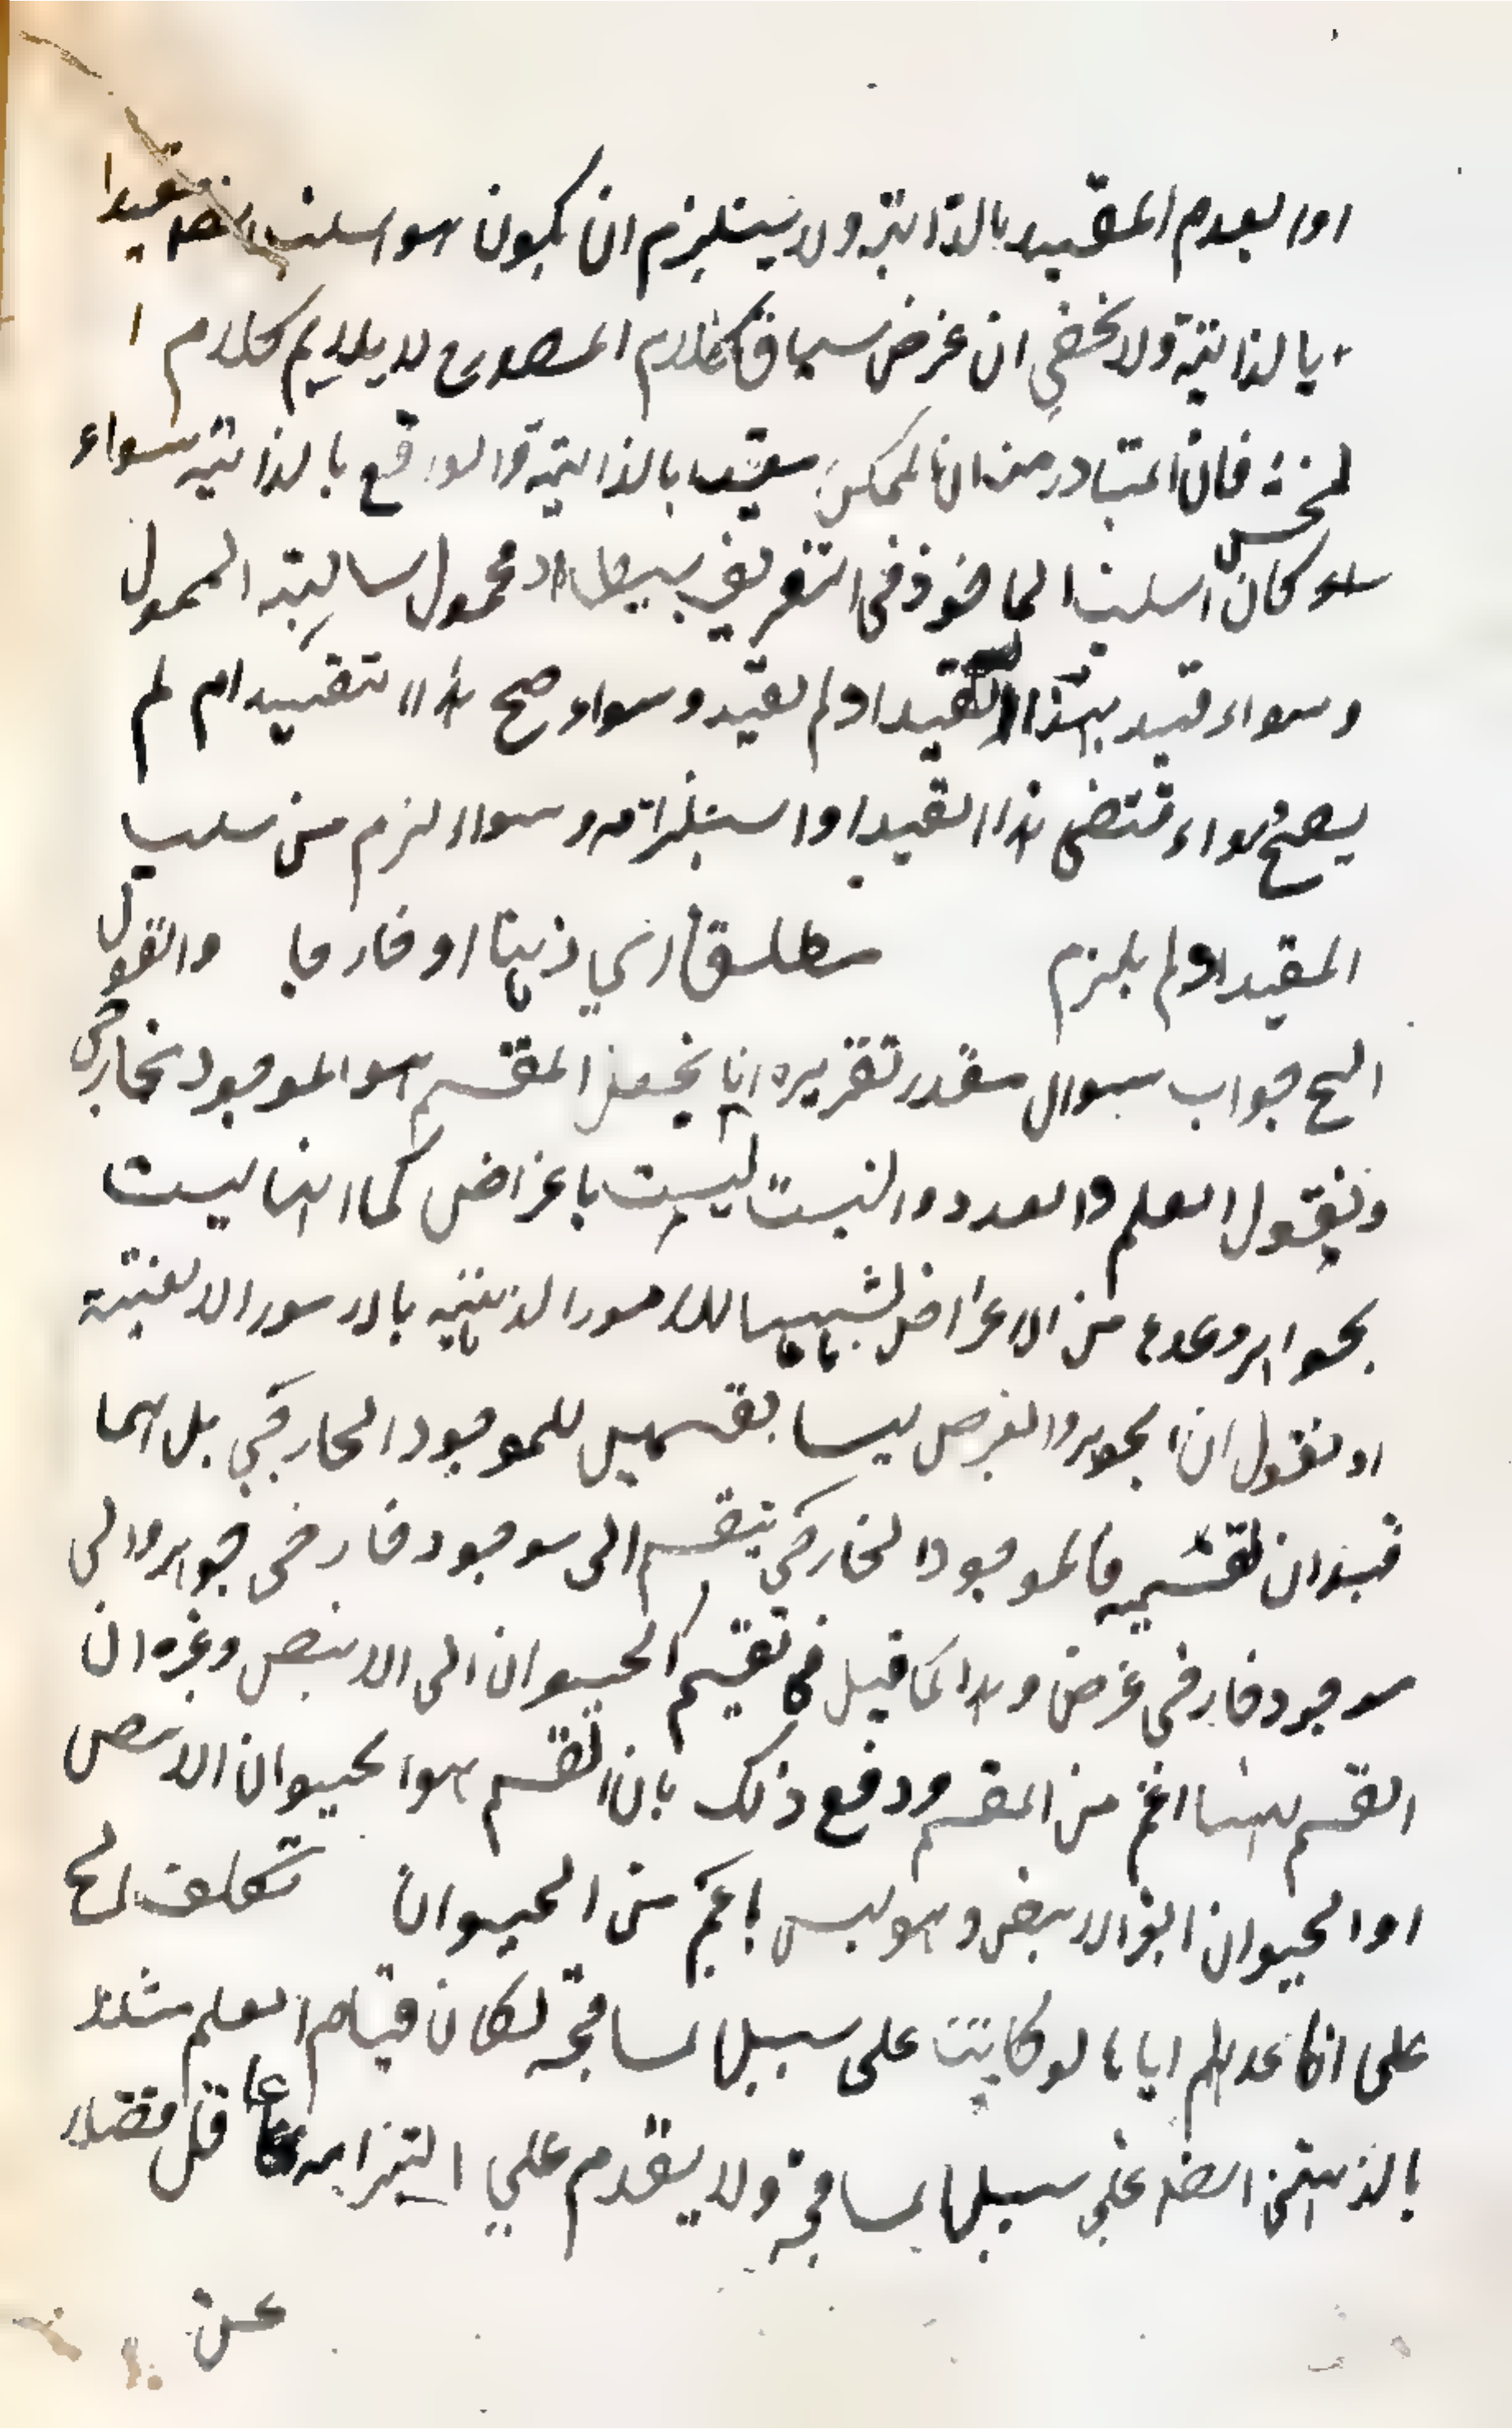 او العدم المقيد بالذاتية ولا يستلزم ان يكون هو السلب ايضا مقيدا
بالذاتية ولا يخفى ان غرض سياق كلام المص لا يلايم كلام ا
لمخشى فان المتبادر من ان الممكن مقيد بالذاتية والواقع بالذاتية سواء
سواء كان السلب الماخوذ في التعريف بسيطا او محمول سالبة المحمول
وسواء قيد بهذا القيد او لم يقيد وسواء صح هذا التقييد ام لم
يصح سواء اقتضى هذا القيد او استلزامه وسواء لزم من سلب
المقيد او لم يلزم مطلقا اي ذهنا او خارجا والقول
الخ جواب سوال مقدر تقريره انا نجعل المقسم هو الموجود الخارجي
ونقول العلم والعدد والنسبة ليست باعراض كما انها ليست
بجواهر وعدها من الاعراض تشبيها للامور الذهنية بالامور العينية
او نقول ان الجوهر والعرض ليسا بقسمين للموجود الخارجي بل هما
قيدان لقسميه فالموجود الخارجي ينقسم الى موجود خارجي جوهر والى
موجود خارجي عرض وهذا كما قيل في تقسيم الحيوان الى الابيض وغيره ان
القسم ههنا اعم من المقسم ودفع ذلك بان القسم هو الحيوان الابيض
او الحيوان الغير الابيض وهو ليس باعم من الحيوان تكلف الخ
على ان عدهم اياها لو كانت على سبيل المسامحة لكان قيام العلم مثلا
بالذهن ايضا على سبيل المسامحة ولا يقدم على التزامه عاقل فضلا
عن